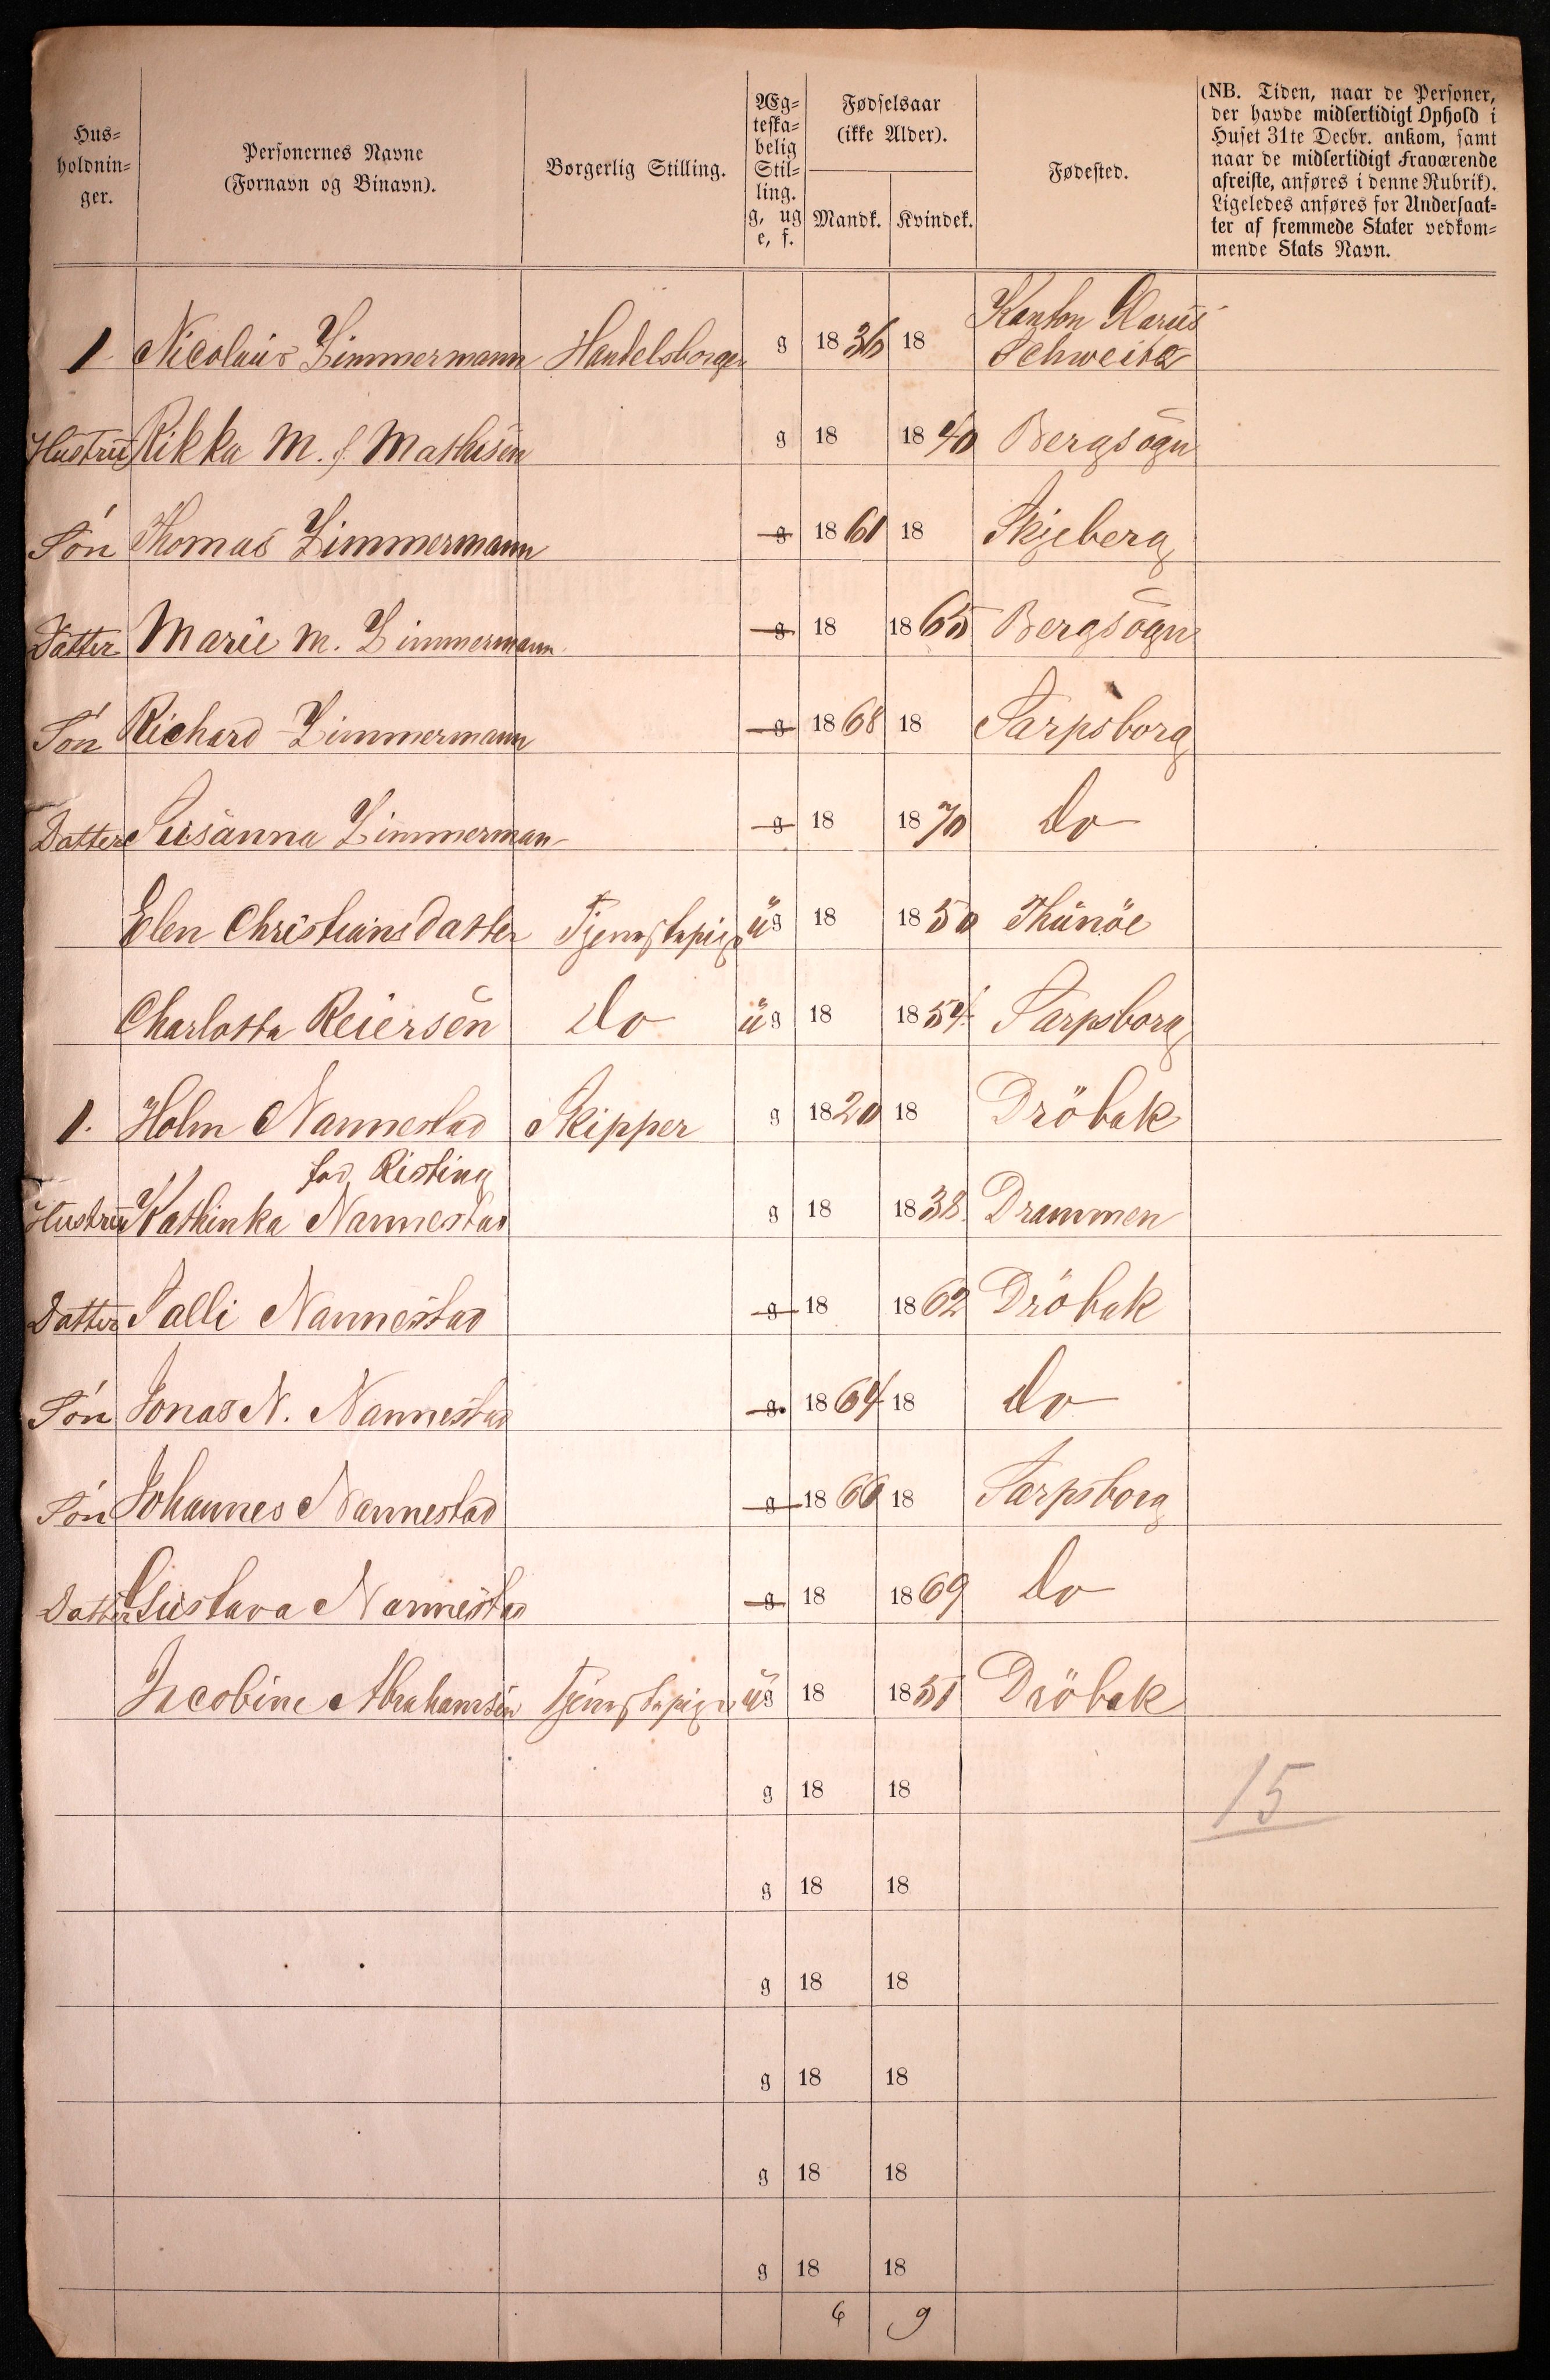 Hus-
holdnin-
ger.
Personernes Navne
(Fornavn og Binavn).
Borgerlig Stilling.
Æg-
teska-
belig
Stil-
ling.
g, ug
e, f.
Fødselsaar
(ikke Alder).
Mandk. Kvindek.
Fødested.
(NB. Tiden, naar de Personer,
der havde midlertidigt Ophold i
Huset 31te Decbr. ankom, samt
naar de midlertidigt Fraværende
afreiste, anføres i denne Rubrik).
Ligeledes anføres for Undersaat-
ter af fremmede Stater vedkom-
mende Stats Navn.
Kanton Glarus
1 Nicolaus Zimmermann Handelsborger g 1836 18 Schweitz
Hustru Rikka M. f. Mathisen g 18 1840 Bergsogn
Sön Thomas Zimmermann g 1861 18 Skjeberg
Datter Marie M. Zimmermann g 18 1865 Bergsogn
Sön Richard Zimmermann g 1868 18 Sarpsborg
Datter Susanna Zimmerman g 18 1870 do
Elen Christiansdatter Tjenestepige ug 18 1850 Thunöe
Charlotta Reiersen do ug 18 1854 Sarpsborg
1. Holm Nannestad Skipper g 1820 18 Dröbak
fød Risting
Hustru Kathinka Nannestad g 18 1838 Drammen
Datter Salli Nannestad g 18 1862 Dröbak
Sön Jonas N. Nannestad g 1864 18 do
Sön Johannes Nannestad g 1866 18 Sarpsborg
Datter Gustava Nannestad g 18 1869 do
Jacobine Abrahamsen Tjenestepige ug 18 1851 Dröbak
g 18 18
15
g 18 18
g 18 18
g 18 18
g 18 18
g 18 18
6 9